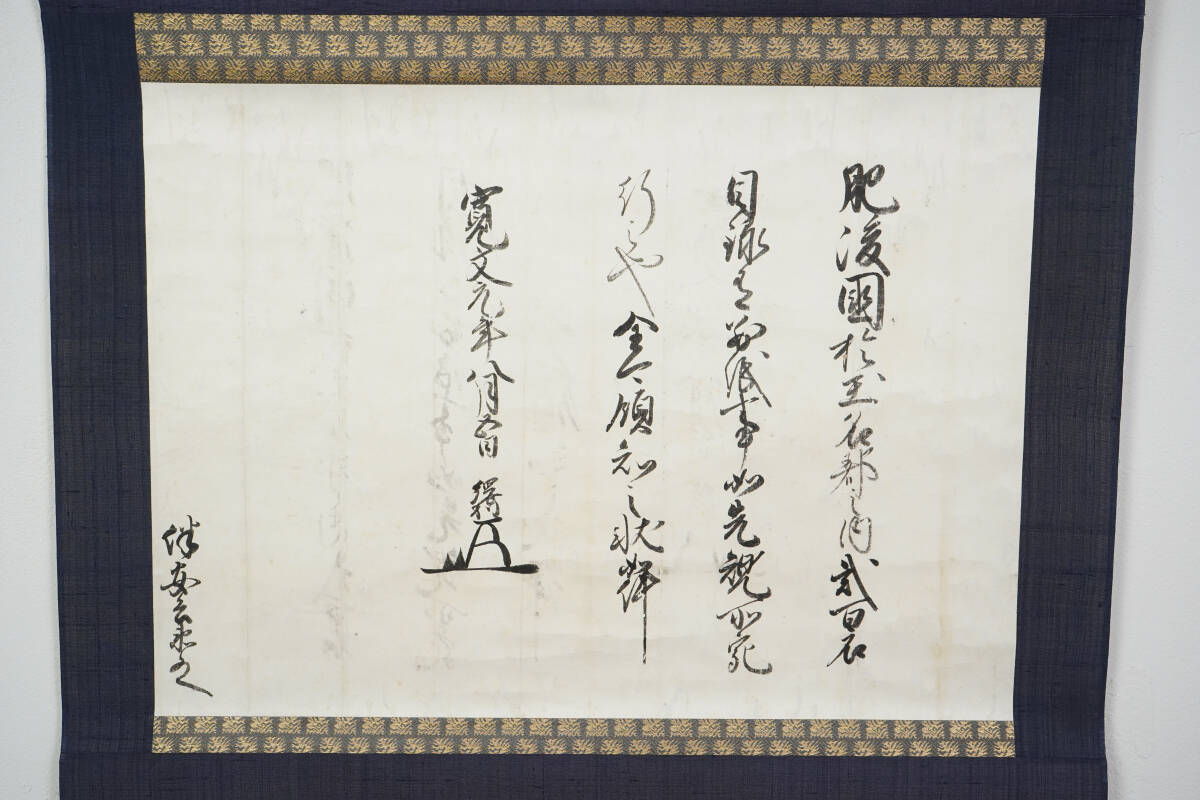 肥後國於玉名郡之内弐百石
目録在別紙事如先規所宛
行之也全可領知之状如件
寛文元年八月五日 綱利